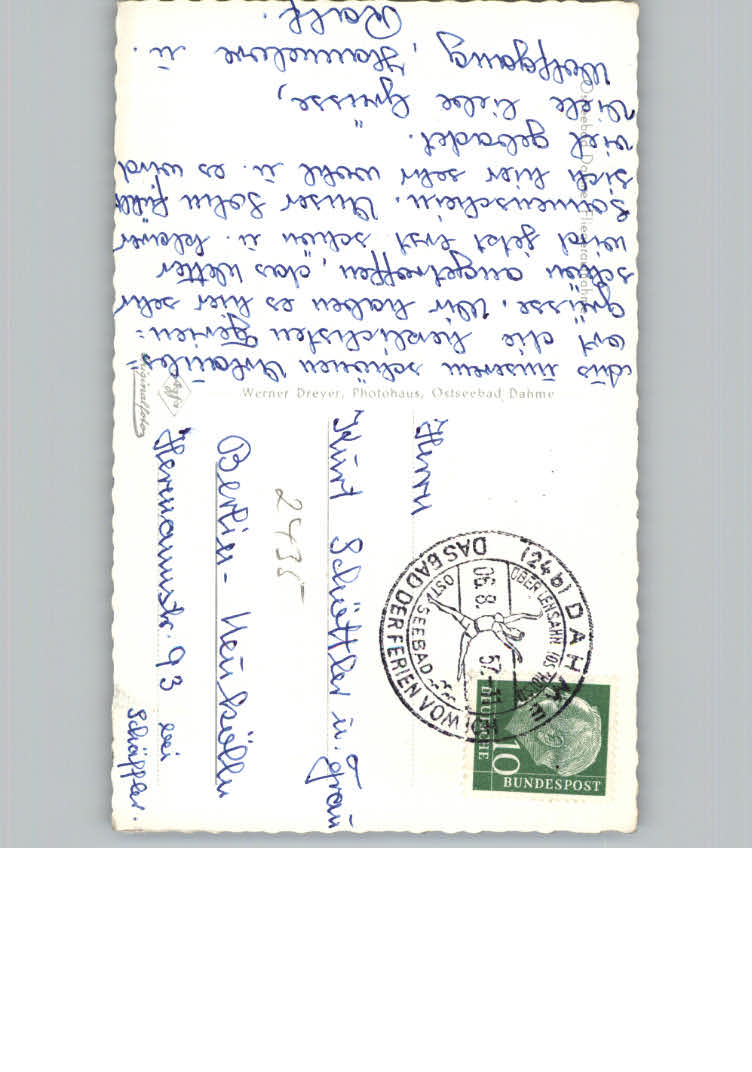 Aus unserem schönen Urlaubs=
ort die herzlichsten Ferien=
grüsse. Wir haben es hier sehr
schön angetroffen, das Wetter
wird jetzt erst schön u.
Sonnenschein. Unser Sohn fühlt
sich hier sehr wohl u. es wird
viel gebadet.
Viele liebe Grüsse,
Wolfgang, Hannelore u.
Ralf.
Ostseebad Dahme, Fliegeraufnahme
Werner Dreyer, Photohaus, Ostseebad Dahme
Agfa
Originalfoto
Herrn
Kurt Schöttler u. Frau
Berlin - Neukölln
Hermannstr. 93 bei
Schäffler.
2435
(24b) DAHME
ÜBER LENSAHN
OSTSEEBAD
06.8.57.-11
DAS BAD DER FERIEN VOM ICH
DEUTSCHE
BUNDESPOST
10